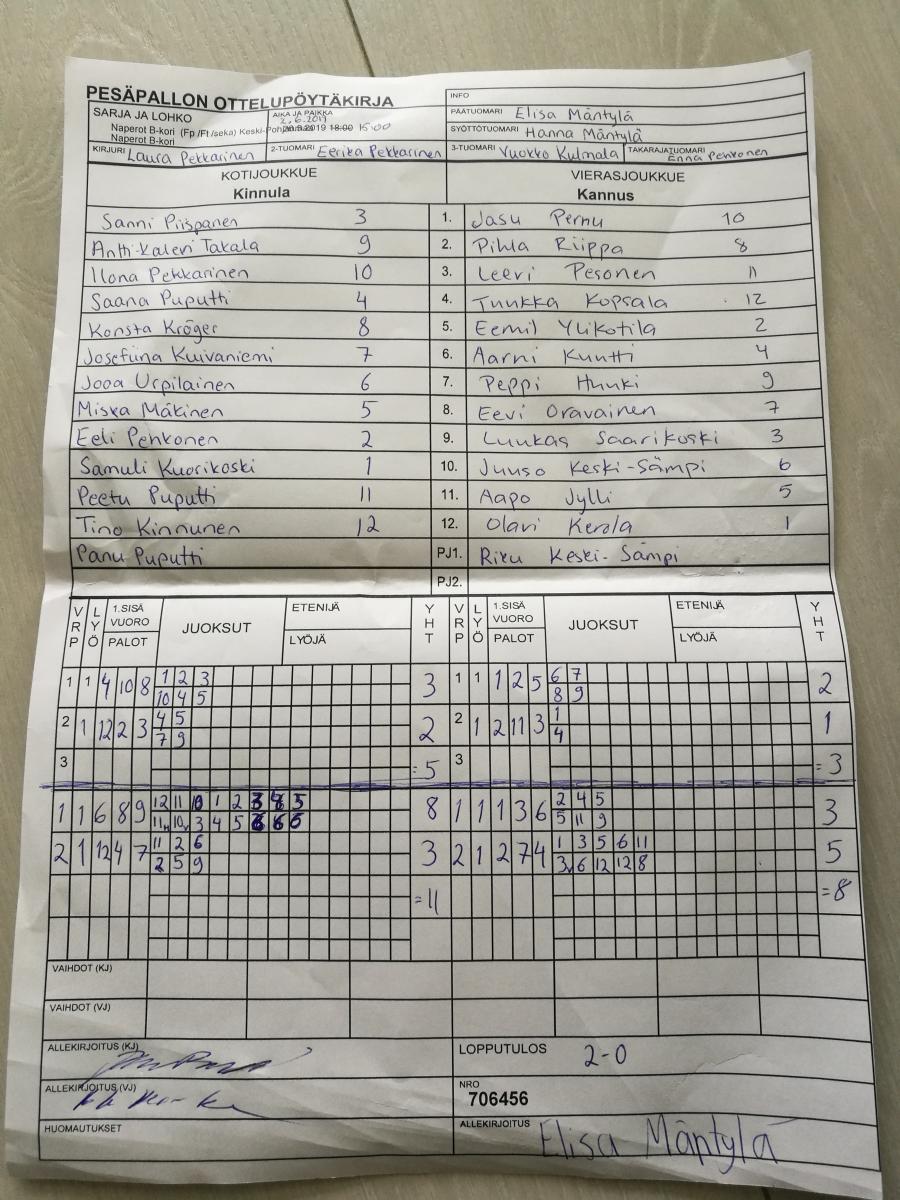 PESÄPALLON OTTELUPÖYTÄKIRJA
INFO
SARJA JA LOHKO
AIKA JA PAIKKA
2.6.2019
PÄÄTUOMARI Elisa Mäntylä
Naperot B-kori (Fp /Ft /seka) Keski-Poh 2019 18:00 15:00
Naperot B-kori
SYÖTTÖTUOMARI Hanna Mäntylä
KIRJURI Laura Pekkarinen 2-TUOMARI Eerika Pekkarinen 3-TUOMARI Vuokko Kulmala TAKARAJATUOMARI Enna Penkonen
KOTIJOUKKUE VIERASJOUKKUE
Kinnula Kannus
Sanni Piispanen 3 1. Jasu Pernu 10
Antti-Kaleri Takala 9 2. Pihla Riippa 8
Ilona Pekkarinen 10 3. Leevi Pesonen 11
Saana Puputti 4 4. Tuukka Kopsala 12
Konsta Kröger 8 5. Eemil Ylikotila 2
Josefiina Kuivaniemi 7 6. Aarni Kuntti 4
Jooa Urpilainen 6 7. Peppi Huuki 9
Miska Mäkinen 5 8. Eevi Oravainen 7
Eeli Penkonen 2 9. Luukas Saarikoski 3
Samuli Kuorikoski 1 10. Juuso Keski-Sämpi 6
Peetu Puputti 11 11. Aapo Jylli 5
Tino Kinnunen 12 12. Olavi Kerola 1
Panu Puputti PJ1. Riku Keski-Sämpi
PJ2.
VRP LYÖ 1.SISÄ VUORO PALOT JUOKSUT ETENIJÄ LYÖJÄ YHT VRP LYÖ 1.SISÄ VUORO PALOT JUOKSUT ETENIJÄ LYÖJÄ YHT
1 1 4 10 8 1 2 3 3 1 1 1 2 5 6 7 2
10 4 5 8 9
2 1 12 2 3 4 5 2 2 1 2 11 3 1 1
7 9 4
3 =5 3 =3
1 1 6 8 9 12 11 1 2 5 8 1 1 1 3 6 2 4 5 3
3 4 5 5 11 9
2 1 12 4 7 11 2 6 3 2 1 2 7 4 1 3 5 6 11 5
2 5 9 6 12 12 8
=11 =8
VAIHDOT (KJ)
VAIHDOT (VJ)
ALLEKIRJOITUS (KJ) LOPPUTULOS 2-0
ALLEKIRJOITUS (VJ) NRO
706456
HUOMAUTUKSET ALLEKIRJOITUS Elisa Mäntylä